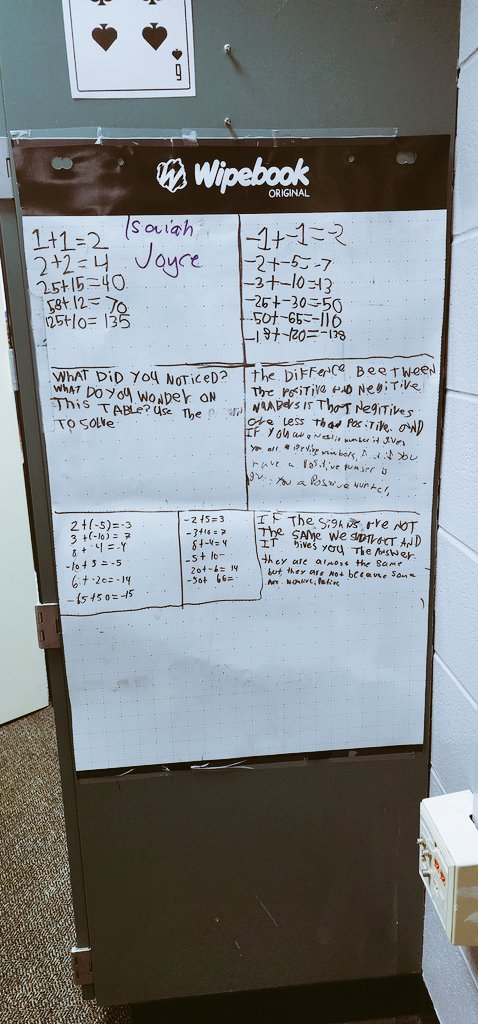 6
Wipebook
ORIGINAL
1+1=2
2+2=4
25+15=40
58+12=70
125+10=135
Isaiah
Joyce
-1+-1=-2
-2+-5=-7
-3+-10=-13
-25+-30=-50
-50+-65=-110
-18+-120=-138
WHAT DID YOU NOTICED?
WHAT DO YOU WONDER ON
THIS TABLE? USE The
TO SOLVE
The DIFFERENCE BEETWEEN
The POSITIVE AND NEGITIVE
NUMBERS IS THAT NEGITIVES
are LESS than POSITIVE. AND
IF YOU number it gives
you all numbers, you
have a Positive number it
you a Positive number,
2+(-5)=-3
3+(-10)=7
8+-4=-4
-10+5=-5
6+-20=-14
-65+50=-15
-2+5=3
-3+10=7
8+-4=4
-5+10=
20+-6=14
-50+ 65=
IF The SIGNS are NOT
THE SAME WE SUBTRACT AND
IT gives you The Answer.
they are almost the same
but they are not because some
are